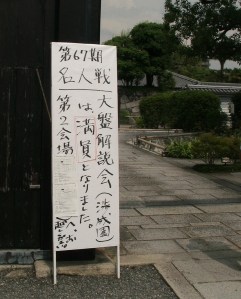 第67期
名人戦
大盤解説会(渉成園)
は満員となりました。
第2会場